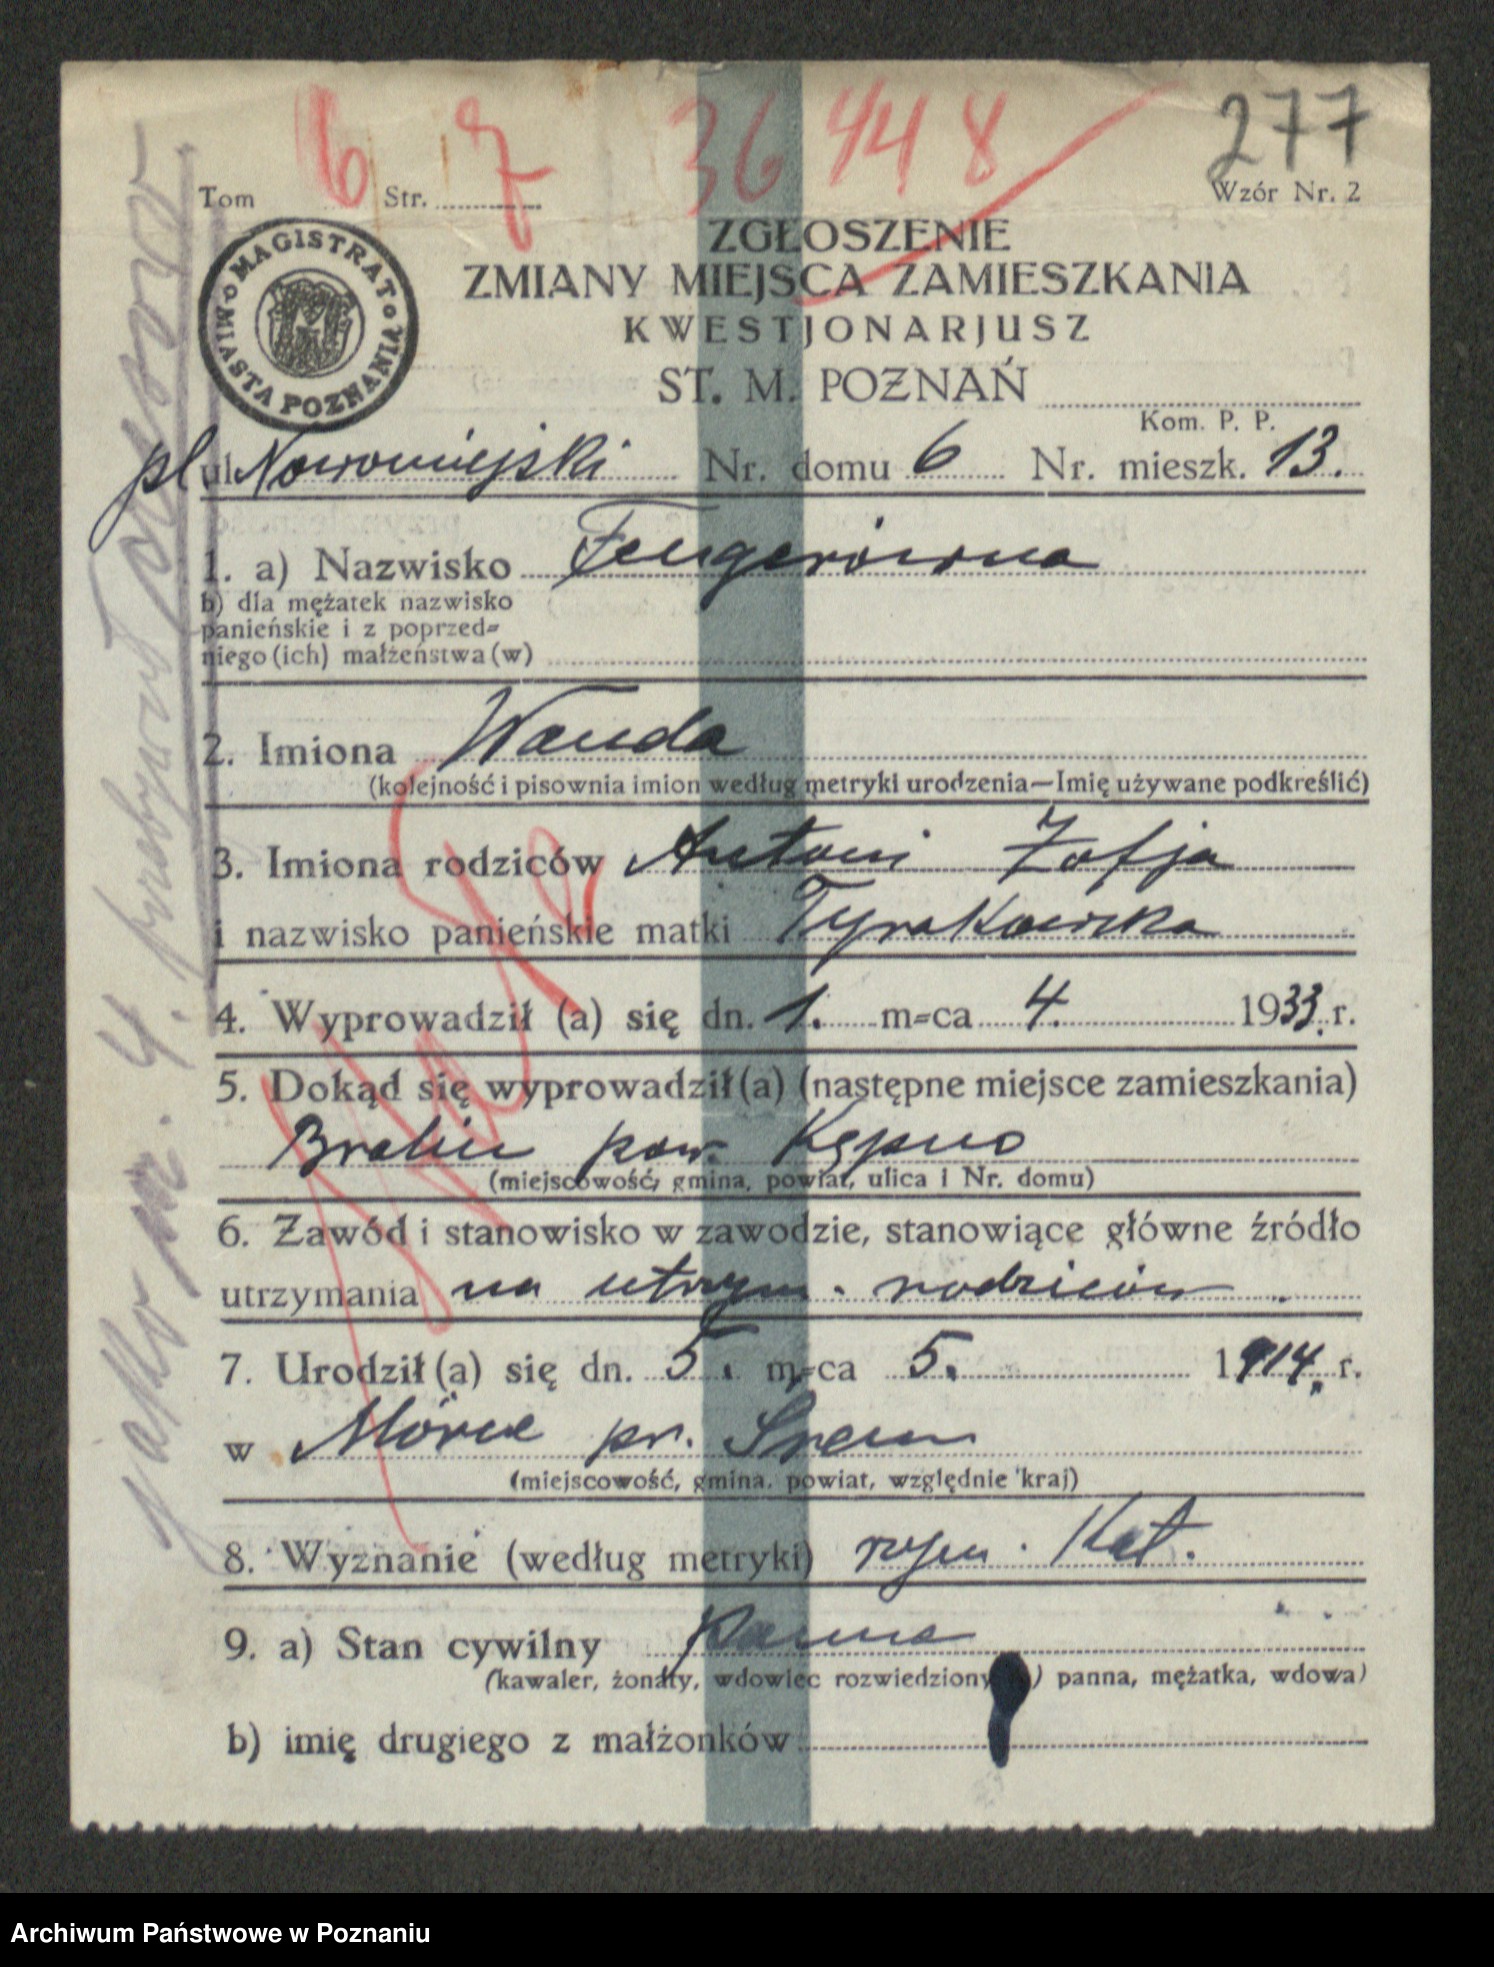 6 7 36448 277
Tom Str. Wzór Nr. 2
MAGISTRAT MIASTA POZNANIA
ZGŁOSZENIE
ZMIANY MIEJSCA ZAMIESZKANIA
KWESTJONARJUSZ
ST. M. POZNAŃ
Kom. P. P.
pl ul. Nowomiejski Nr. domu 6 Nr. mieszk. 13.
1. a) Nazwisko Fengerówna
b) dla mężatek nazwisko
panieńskie i z poprzed-
niego (ich) małżeństwa (w)
2. Imiona Wanda
(kolejność i pisownia imion według metryki urodzenia—Imię używane podkreślić)
3. Imiona rodziców Antoni Zofja
i nazwisko panieńskie matki Tyrakowska
4. Wyprowadził (a) się dn. 1. m-ca 4. 1933. r.
5. Dokąd się wyprowadził (a) (następne miejsce zamieszkania)
Bralin pow. Kępno
(miejscowość, gmina, powiat, ulica i Nr. domu)
6. Zawód i stanowisko w zawodzie, stanowiące główne źródło
utrzymania na utrzym. rodziców
7. Urodził (a) się dn. 5. m-ca 5. 1914. r.
w pr. Śrem
(miejscowość, gmina, powiat, względnie kraj)
8. Wyznanie (według metryki) rzym. kat.
9. a) Stan cywilny panna
(kawaler, żonaty, wdowiec rozwiedziony ) panna, mężatka, wdowa)
b) imię drugiego z małżonków
Archiwum Państwowe w Poznaniu